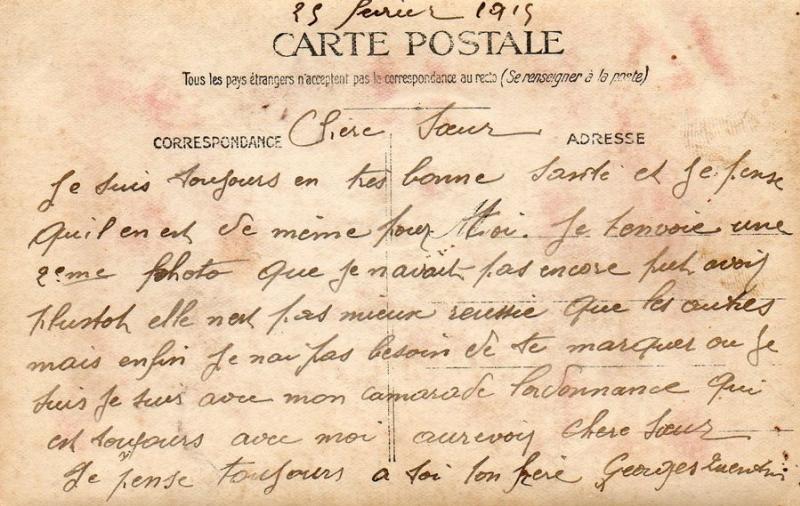 25 fevrier 1915
CARTE POSTALE
Tous les pays étrangers n'acceptent pas la correspondance au recto (Se renseigner à la poste)
CORRESPONDANCE
Chère Sœur
ADRESSE
Je suis toujours en très bonne santé et Je pense
qu'il en est de même pour Ttoi. Je t'envoie une
2eme photo que Je navait pas encore put avoir
plustot elle n'est pas mieux reussie que les autres
mais enfin Je nai pas besoin de te marquer ou Je
suis Je suis avec mon camarade l'ordonnance qui
est toujours avec moi aurevoir chere Sœur
Je pense toujours a toi ton frère Georges